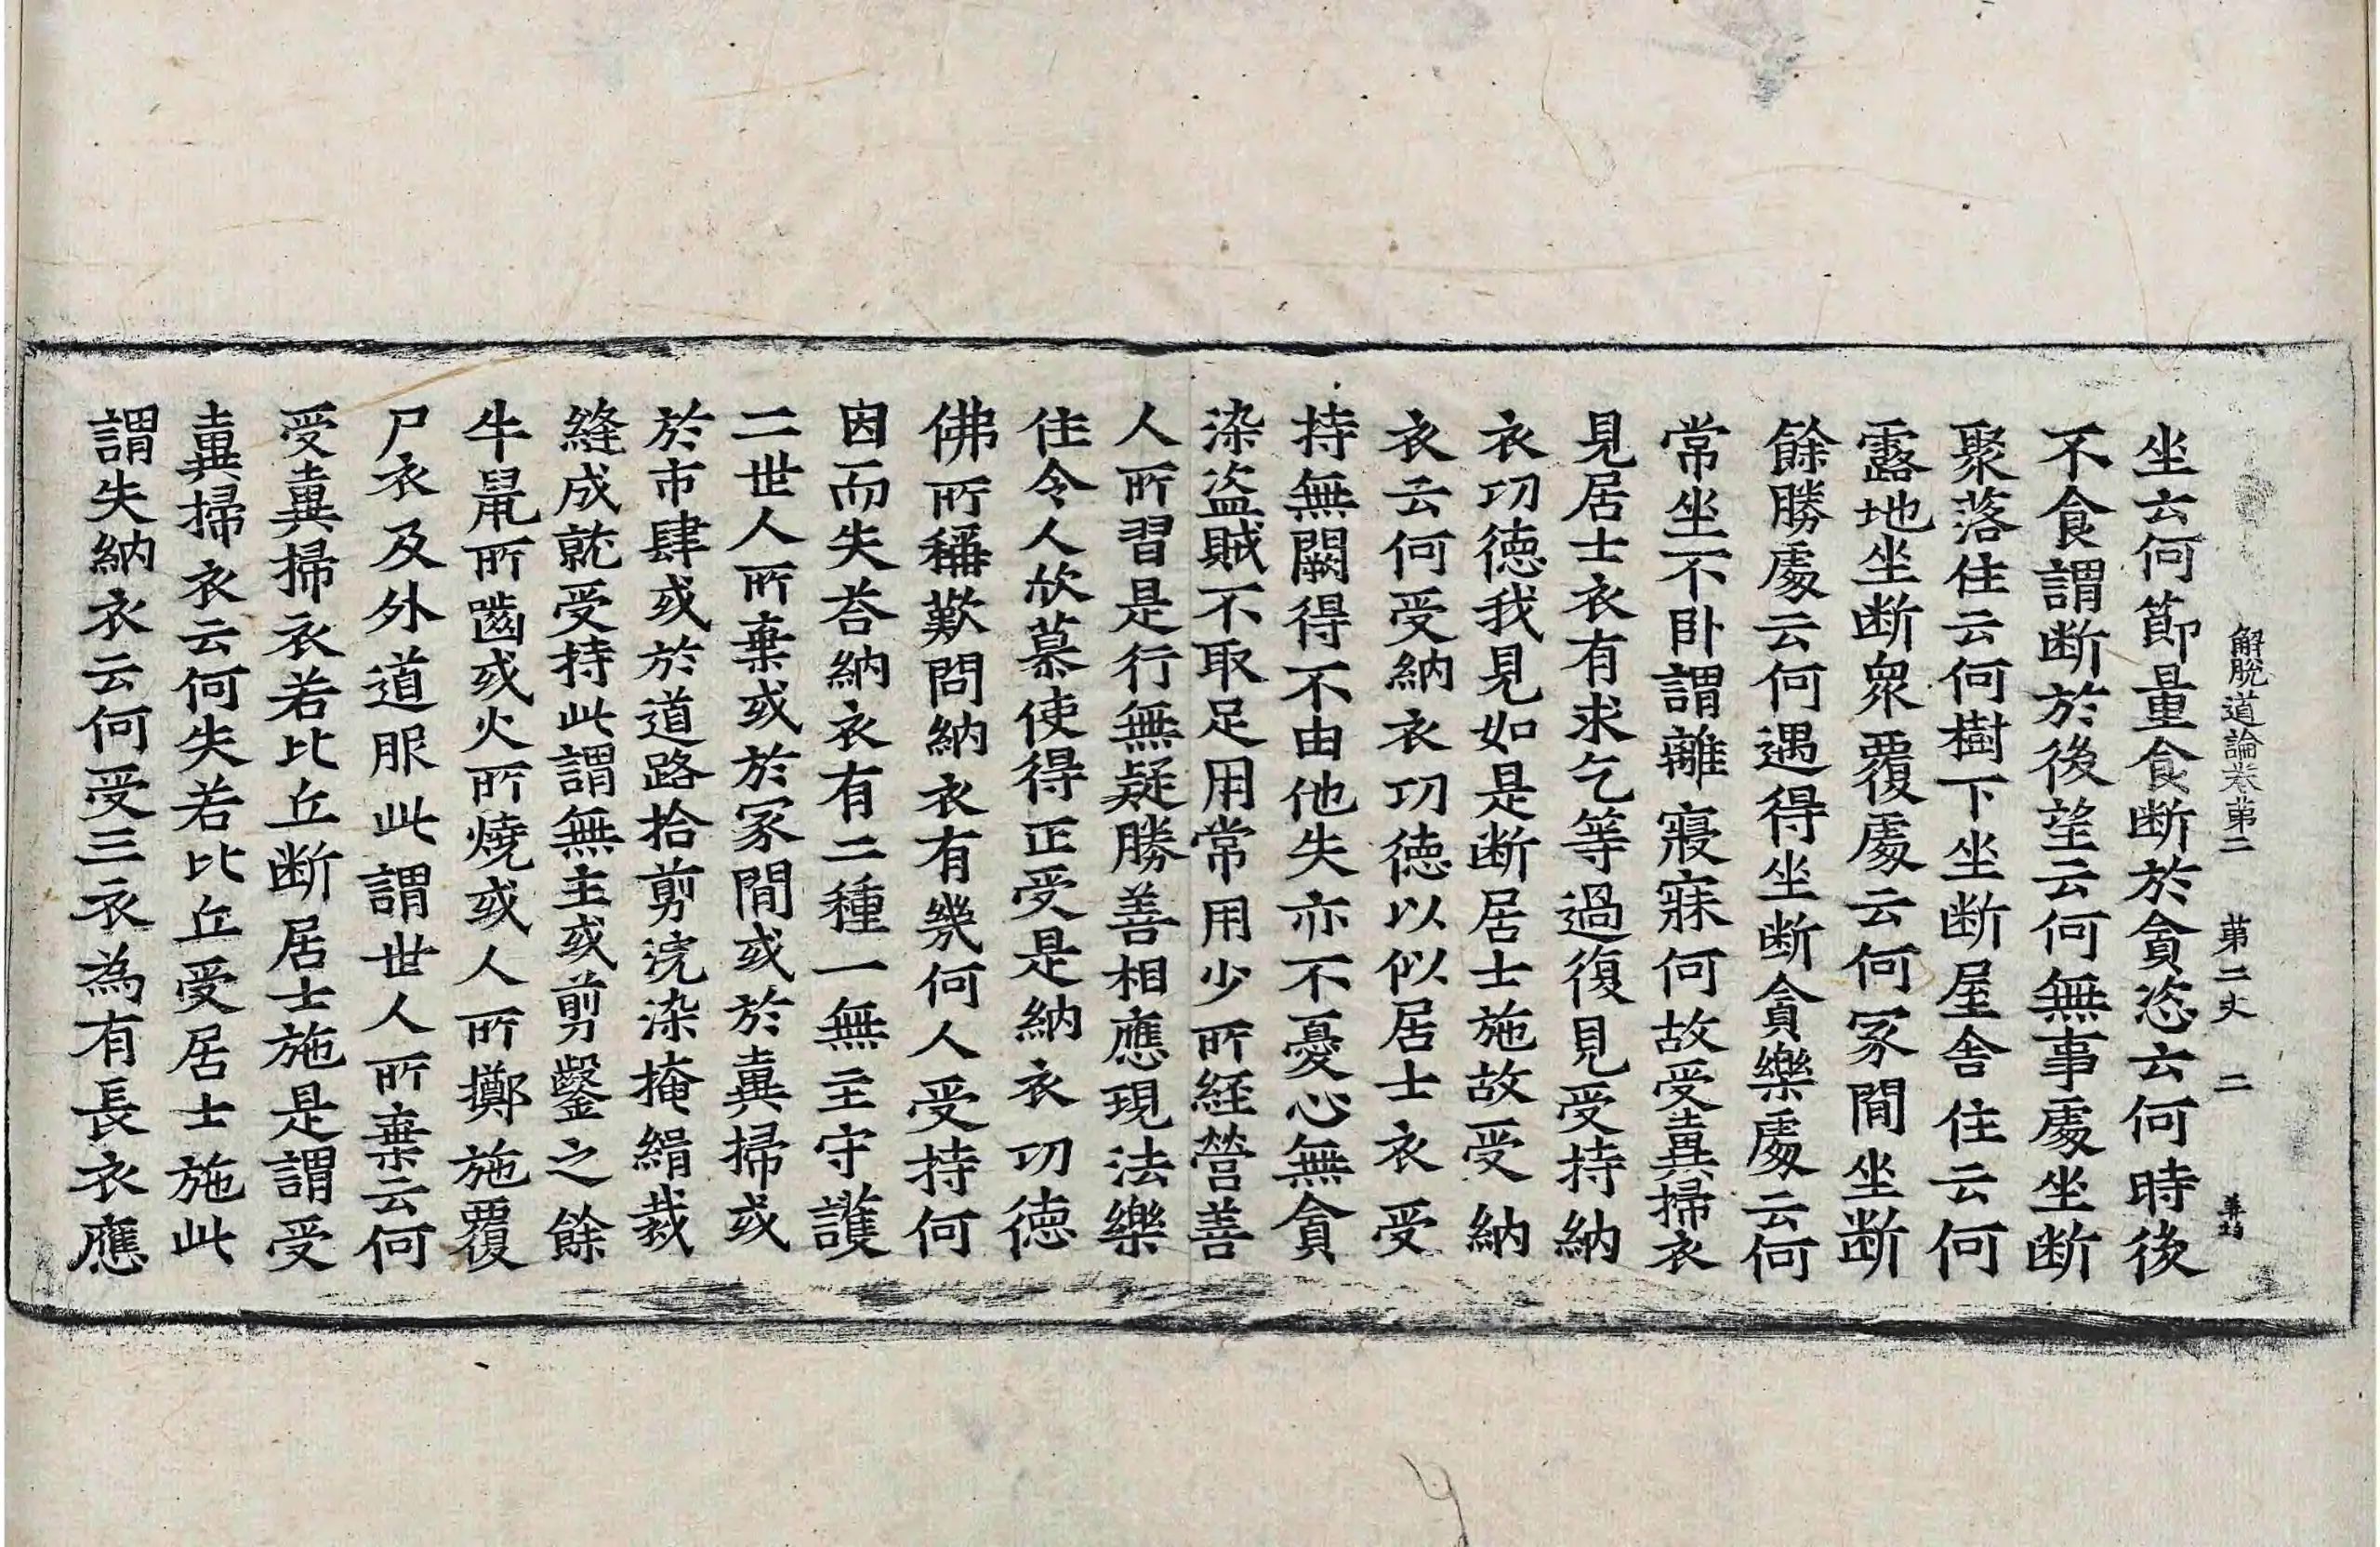 解脫道論卷第二　第二丈　二
坐云何節量食断於貪恣云何時後
不食謂断於後望云何無事處坐断
聚落住云何樹下坐断屋舍住云何
露地坐断衆覆處云何冢間坐断
餘勝處云何遇得坐断貪樂處云何
常坐不卧謂離寢寐何故受糞掃衣
見居士衣有求乞等過復見受持納
衣功德我見如是断居士施故受納
衣云何受納衣功德以似居士衣受
持無闕得不由他失亦不憂心無貪
染盜賊不取足用常用少所經營善
人所習是行無疑勝善相應現法樂
住令人欣慕使得正受是納衣功德
佛所稱歎問納衣有幾何人受持何
因而失荅納衣有二種一無主守護
二世人所棄或於冢間或於糞掃或
於市肆或於道路拾剪浣染掩緝裁
縫成就受持此謂無主或剪鑿之餘
牛鼠所嚙或火所燒或人所擲施覆
尸衣及外道服此謂世人所棄云何
受糞掃衣若比丘断居士施是謂受
糞掃衣云何失若比丘受居士施此
謂失納衣云何受三衣為有長衣應